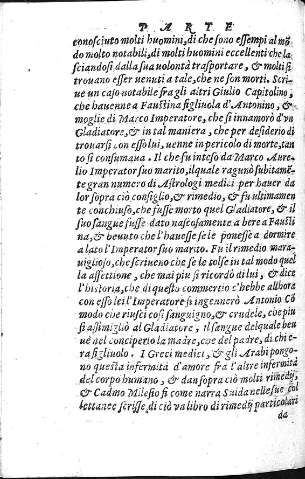 PARTE
conosciuto molti huomini, di che sono essempi al mõ
do molto notabili, di molti huomini eccellenti che la
sciandosi dalla sua uolontà trasportare, & molti si
trouano esser uenuti a tale, che ne son morti. Scri-
ue un caso notabile fra gli altri Giulio Capitolino,
che hauenne a Faustina figliuola d'Antonino, &
moglie di Marco Imperatore, che si innamorò d'vn
Gladiatore, & in tal maniera, che per desiderio di
trouarsi con esso lui, uenne in pericolo di morte, tan
to si consumaua. Il che fu inteso da Marco Aure-
lio Imperator suo marito, ilquale ragunò subitamẽ-
te gran numero di Astrologi medici per hauer da
lor sopra ciò consiglio, & rimedio, & fu ultimamen
te conchiuso, che fusse morto quel Gladiatore, & il
suo sangue fusse dato nascosamente a bere a Fausti
na, & beuuto che l'hauesse se le ponesse a dormire
a lato l'Imperator suo marito. Fu il rimedio mara-
uiglioso, che scriueno che se le tolse in tal modo quel
la affettione, che mai piu si ricordò di lui, & dice
l'historia, che di questo commertio c'hebbe allhora
con esso lei l'Imperatore si ingenerò Antonio Cõ
modo che riuscì così sanguigno, & crudele, che piu
si assimigliò al Gladiatore, il sangue del quale beu
uè nel conciperlo la madre, che del padre, di chi e-
ra figliuolo. I Greci medici, & gli Arabi pongo-
no questa infermità d'amore fra l'altre infermità
del corpo humano, & dan sopra ciò molti rimedij,
& Cadmo Milesio si come narra Suida nelle sue col
lettanee scrisse, di ciò va libro di rimedij particolari
da